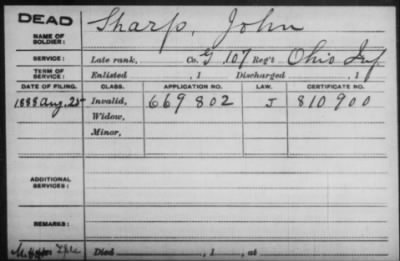 DEAD
NAME OF SOLDIER: Sharp, John
SERVICE: Late rank, Co. G 107 Reg't Ohio Inf
TERM OF SERVICE: Enlisted , 1 Discharged , 1
DATE OF FILING. CLASS. APPLICATION NO. LAW. CERTIFICATE NO.
1888 Aug. 25 Invalid, 669 802 J 810900
Widow,
Minor,
ADDITIONAL SERVICES:
REMARKS:
Died , 1 , at